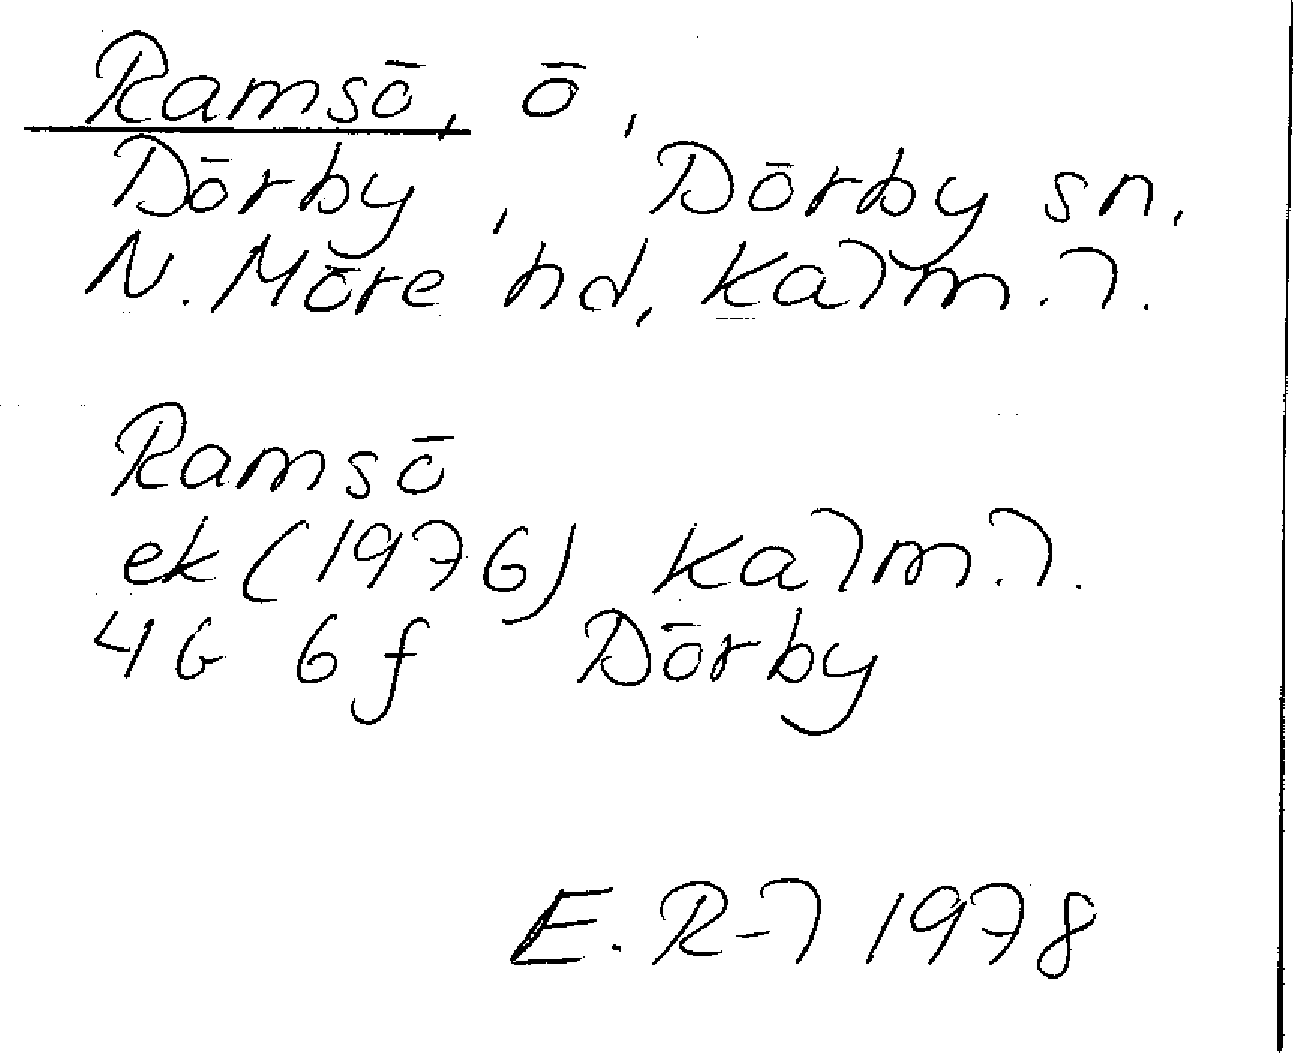 Ramsö, ö,
Dörby, Dörby sn.
N. Möre hd, Kalm. l.
Ramsö
ek (1976) Kalm. l.
4G 6f Dörby
E. R-l 1978